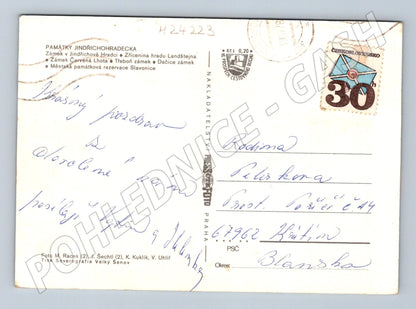 H24223
PAMÁTKY JINDŘICHOHRADECKA
Zámek v Jindřichově Hradci ⬥ Zřícenina hradu Landštejna
⬥ Zámek Červená Lhota ⬥ Třeboň zámek ⬥ Dačice zámek
⬥ Městská památková rezervace Slavonice
Kčs 0,20
ČESKOSLOVENSKO
30h
Krásný pozdrav
z
dovolené
posílají
a
NAKLADATELSTVÍ PRESSFOTO PRAHA
Rodina
Prost. Poříčí č.
67962 Křtiny
PSČ
Okres Blansko
Foto M. Raceк (2), J. Šechtl (2), K. Kuklík, V. Uhlíř
Tisk Severografia Velký Šenov
POHLEDNICE - GASH